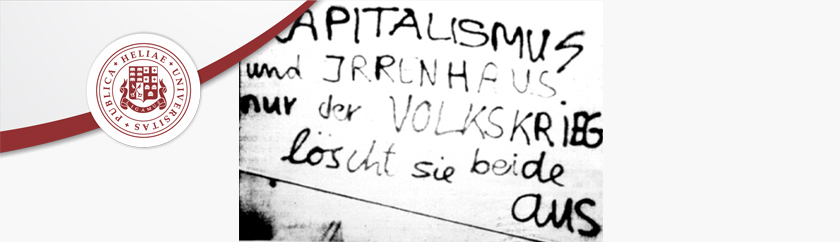 HELIAE · UNIVERSITAS · PUBLICA
KAPITALISMUS
und IRRENHAUS
nur der VOLKSKRIEG
löscht sie beide
aus